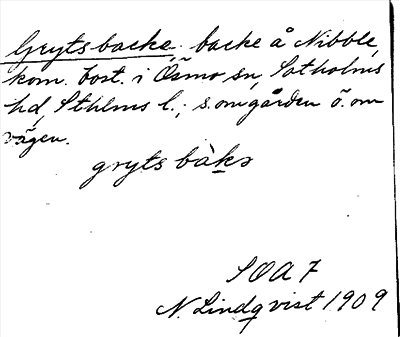 Grytsbacke, backe å Nibble,
kom. bost. i Ösmo sn, Sotholms
hd, Sthlms l.; s. om gården ö. om
vägen.
grytsbàkə
SOA 7
N. Lindqvist 1909